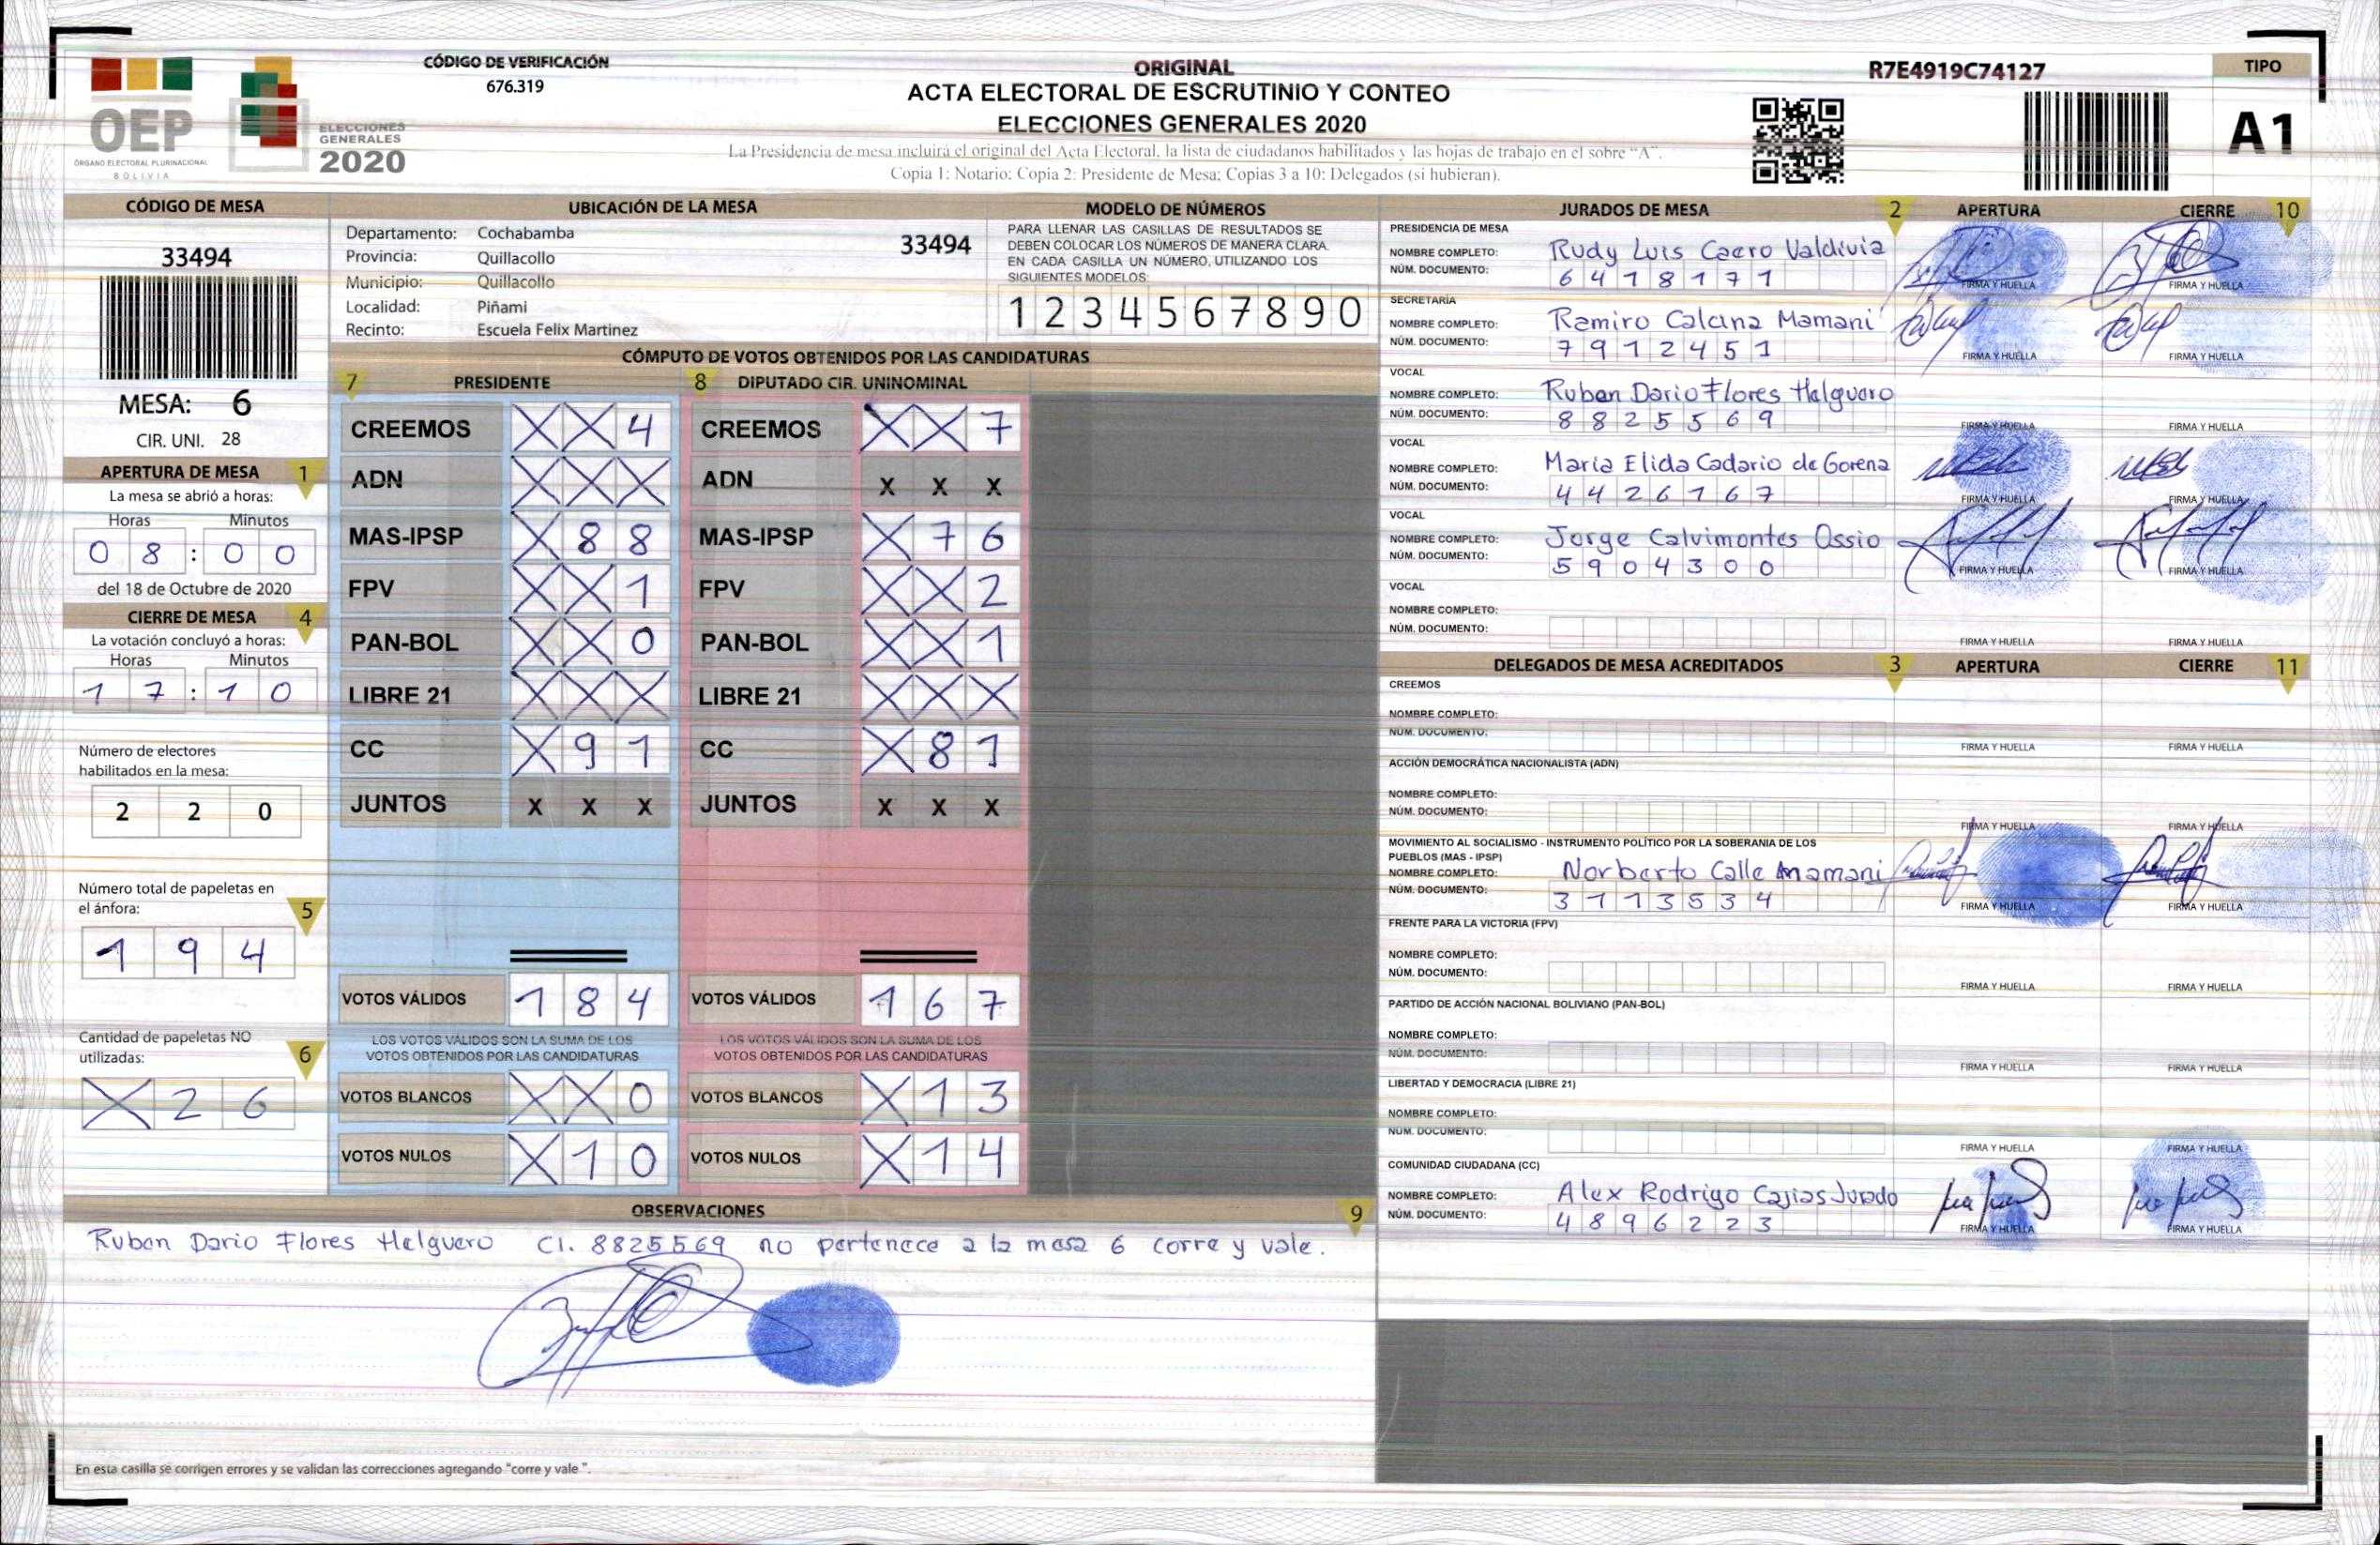 OEP
ÓRGANO ELECTORAL PLURINACIONAL
BOLIVIA
ELECCIONES
GENERALES
2020
CÓDIGO DE VERIFICACIÓN
676.319
ORIGINAL
ACTA ELECTORAL DE ESCRUTINIO Y CONTEO
ELECCIONES GENERALES 2020
La Presidencia de mesa incluirá el original del Acta Electoral, la lista de ciudadanos habilitados y las hojas de trabajo en el sobre "A".
Copia 1: Notario; Copia 2: Presidente de Mesa; Copias 3 a 10: Delegados (si hubieran).
R7E4919C74127
TIPO
A1
CÓDIGO DE MESA
33494
MESA: 6
CIR. UNI. 28
APERTURA DE MESA 1
La mesa se abrió a horas:
Horas Minutos
0 8 : 0 0
del 18 de Octubre de 2020
CIERRE DE MESA 4
La votación concluyó a horas:
Horas Minutos
1 7 : 1 0
Número de electores
habilitados en la mesa:
2 2 0
Número total de papeletas en
el ánfora: 5
1 9 4
Cantidad de papeletas NO
utilizadas: 6
X 2 6
UBICACIÓN DE LA MESA
Departamento: Cochabamba 33494
Provincia: Quillacollo
Municipio: Quillacollo
Localidad: Piñami
Recinto: Escuela Felix Martinez
MODELO DE NÚMEROS
PARA LLENAR LAS CASILLAS DE RESULTADOS SE
DEBEN COLOCAR LOS NÚMEROS DE MANERA CLARA.
EN CADA CASILLA UN NÚMERO, UTILIZANDO LOS
SIGUIENTES MODELOS:
1 2 3 4 5 6 7 8 9 0
CÓMPUTO DE VOTOS OBTENIDOS POR LAS CANDIDATURAS
7 PRESIDENTE 8 DIPUTADO CIR. UNINOMINAL
CREEMOS X X 4 CREEMOS X X 7
ADN X X X ADN X X X
MAS-IPSP X 8 8 MAS-IPSP X 7 6
FPV X X 1 FPV X X 2
PAN-BOL X X 0 PAN-BOL X X 1
LIBRE 21 X X X LIBRE 21 X X X
CC X 9 1 CC X 8 1
JUNTOS X X X JUNTOS X X X
VOTOS VÁLIDOS 1 8 4 VOTOS VÁLIDOS 1 6 7
LOS VOTOS VÁLIDOS SON LA SUMA DE LOS LOS VOTOS VÁLIDOS SON LA SUMA DE LOS
VOTOS OBTENIDOS POR LAS CANDIDATURAS VOTOS OBTENIDOS POR LAS CANDIDATURAS
VOTOS BLANCOS X X 0 VOTOS BLANCOS X 1 3
VOTOS NULOS X 1 0 VOTOS NULOS X 1 4
OBSERVACIONES 9
Ruben Dario Flores Helguero CI. 8825569 no pertenece a la mesa 6 corre y vale.
En esta casilla se corrigen errores y se validan las correcciones agregando "corre y vale ".
JURADOS DE MESA 2 APERTURA CIERRE 10
PRESIDENCIA DE MESA
NOMBRE COMPLETO: Rudy Luis Caero Valdivia
NÚM. DOCUMENTO: 6 4 1 8 1 7 1 FIRMA Y HUELLA FIRMA Y HUELLA
SECRETARÍA
NOMBRE COMPLETO: Ramiro Calcina Mamani
NÚM. DOCUMENTO: 7 9 1 2 4 5 1 FIRMA Y HUELLA FIRMA Y HUELLA
VOCAL
NOMBRE COMPLETO: Ruben Dario Flores Helguero
NÚM. DOCUMENTO: 8 8 2 5 5 6 9 FIRMA Y HUELLA FIRMA Y HUELLA
VOCAL
NOMBRE COMPLETO: Maria Elida Cadario de Gorena
NÚM. DOCUMENTO: 4 4 2 6 1 6 7 FIRMA Y HUELLA FIRMA Y HUELLA
VOCAL
NOMBRE COMPLETO: Jorge Calvimontes Ossio
NÚM. DOCUMENTO: 5 9 0 4 3 0 0 FIRMA Y HUELLA FIRMA Y HUELLA
VOCAL
NOMBRE COMPLETO:
NÚM. DOCUMENTO: FIRMA Y HUELLA FIRMA Y HUELLA
DELEGADOS DE MESA ACREDITADOS 3 APERTURA CIERRE 11
CREEMOS
NOMBRE COMPLETO:
NÚM. DOCUMENTO: FIRMA Y HUELLA FIRMA Y HUELLA
ACCIÓN DEMOCRÁTICA NACIONALISTA (ADN)
NOMBRE COMPLETO:
NÚM. DOCUMENTO: FIRMA Y HUELLA FIRMA Y HUELLA
MOVIMIENTO AL SOCIALISMO - INSTRUMENTO POLÍTICO POR LA SOBERANIA DE LOS
PUEBLOS (MAS - IPSP)
NOMBRE COMPLETO: Norberto Calle Mamani
NÚM. DOCUMENTO: 3 1 1 3 5 3 4 FIRMA Y HUELLA FIRMA Y HUELLA
FRENTE PARA LA VICTORIA (FPV)
NOMBRE COMPLETO:
NÚM. DOCUMENTO: FIRMA Y HUELLA FIRMA Y HUELLA
PARTIDO DE ACCIÓN NACIONAL BOLIVIANO (PAN-BOL)
NOMBRE COMPLETO:
NÚM. DOCUMENTO: FIRMA Y HUELLA FIRMA Y HUELLA
LIBERTAD Y DEMOCRACIA (LIBRE 21)
NOMBRE COMPLETO:
NÚM. DOCUMENTO: FIRMA Y HUELLA FIRMA Y HUELLA
COMUNIDAD CIUDADANA (CC)
NOMBRE COMPLETO: Alex Rodrigo Cajias Jurado
NÚM. DOCUMENTO: 4 8 9 6 2 2 3 FIRMA Y HUELLA FIRMA Y HUELLA